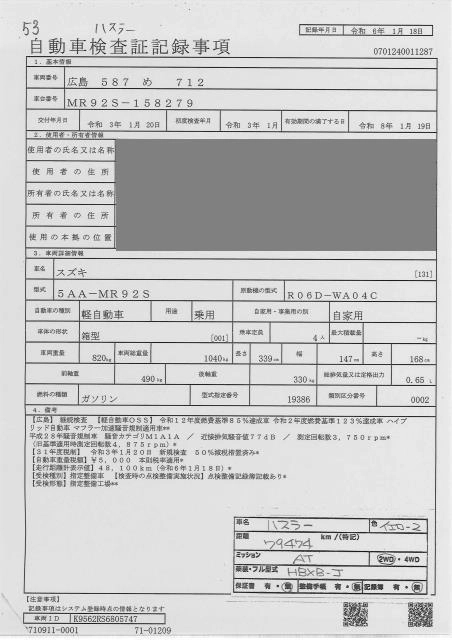 53 ハスラー
記録年月日 令和 6年 1月 18日
自動車検査証記録事項
0701240011287
1. 基本情報
車両番号 広島 587 め 712
車台番号 MR92S-158279
交付年月日 令和 3年 1月 20日 初度検査年月 令和 3年 1月 有効期間の満了する日 令和 8年 1月 19日
2. 使用者・所有者情報
使用者の氏名又は名称
使用者の住所
所有者の氏名又は名称
所有者の住所
使用の本拠の位置
3. 車両詳細情報
車名 スズキ [131]
型式 5AA-MR92S 原動機の型式 R06D-WA04C
自動車の種別 軽自動車 用途 乗用 自家用・事業用の別 自家用
車体の形状 箱型 [001] 乗車定員 4人 最大積載量 -kg
車両重量 820kg 車両総重量 1040kg 長さ 339cm 幅 147cm 高さ 168cm
前軸重 490kg 後軸重 330kg 総排気量又は定格出力 0.65 L
燃料の種類 ガソリン 型式指定番号 19386 類別区分番号 0002
4. 備考
【広島】 継続検査 【軽自動車OSS】 令和12年度燃費基準85%達成車 令和2年度燃費基準123%達成車 ハイブ
リッド自動車 マフラー加速騒音規制適用車**
平成28年騒音規制車 騒音カテゴリM1A1A / 近接排気騒音値77dB / 測定回転数3,750rpm*
(旧基準適用時測定回転数4,875rpm)*
【31年度税制】 令和3年1月20日 新規検査 50%減税措置済み*
【自動車重量税】¥5,000 本則税率適用*
【走行距離計表示値】48,100km(令和6年1月18日)*
【受検種別】指定整備車 【検査時の点検整備実施状況】点検整備記録簿記載あり*
【受検形態】指定整備工場**
車名 ハスラー 色 イエロー2
距離 79474 km/(特記)
ミッション AT 2WD・4WD
装備・フル型式 HBXB-J
保証書 有・無 整備手帳 有・無 記録簿 有・無
【注意事項】
記録事項はシステム登録時点の情報となります
車両ID K9562RS6805747
710911-0001 71-01209